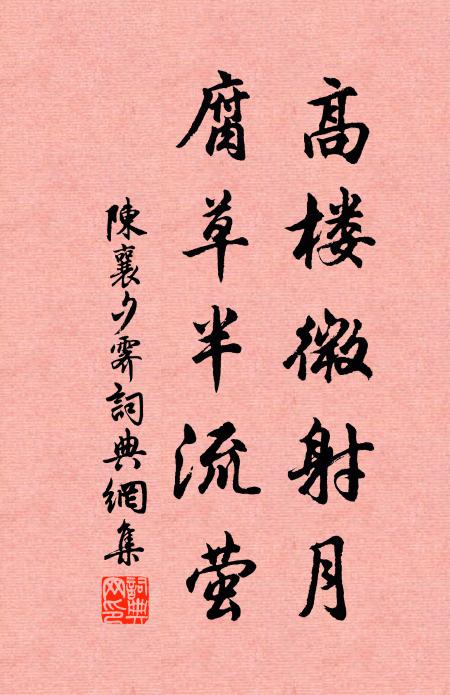 高楼微射月
腐草半流萤
陳襄夕霽詞典網集
詞典網印